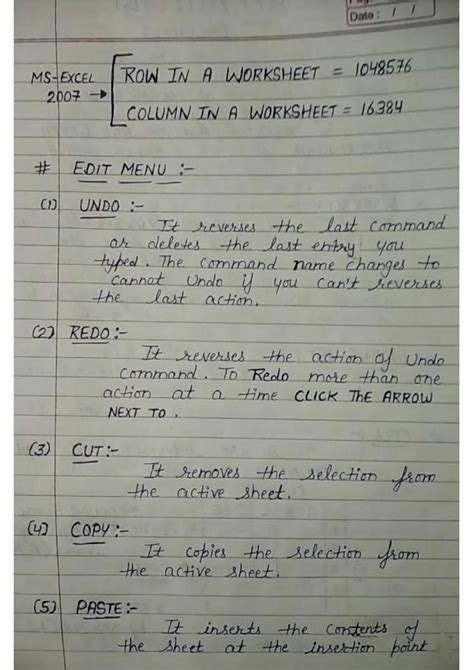 Date : / /
MS-EXCEL 2007 → ROW IN A WORKSHEET = 1048576
COLUMN IN A WORKSHEET = 16384
# EDIT MENU :-
(1) UNDO :-
It reverses the last command
or deletes the last entry you
typed. The command name changes to
Cannot Undo if you can't reverses
the last action.
(2) REDO:-
It reverses the action of Undo
Command. To Redo more than one
action at a time CLICK THE ARROW
NEXT TO .
(3) CUT:-
It removes the selection from
the active sheet.
(4) COPY:-
It copies the selection from
the active sheet.
(5) PASTE:-
It inserts the contents of
the sheet at the insertion point